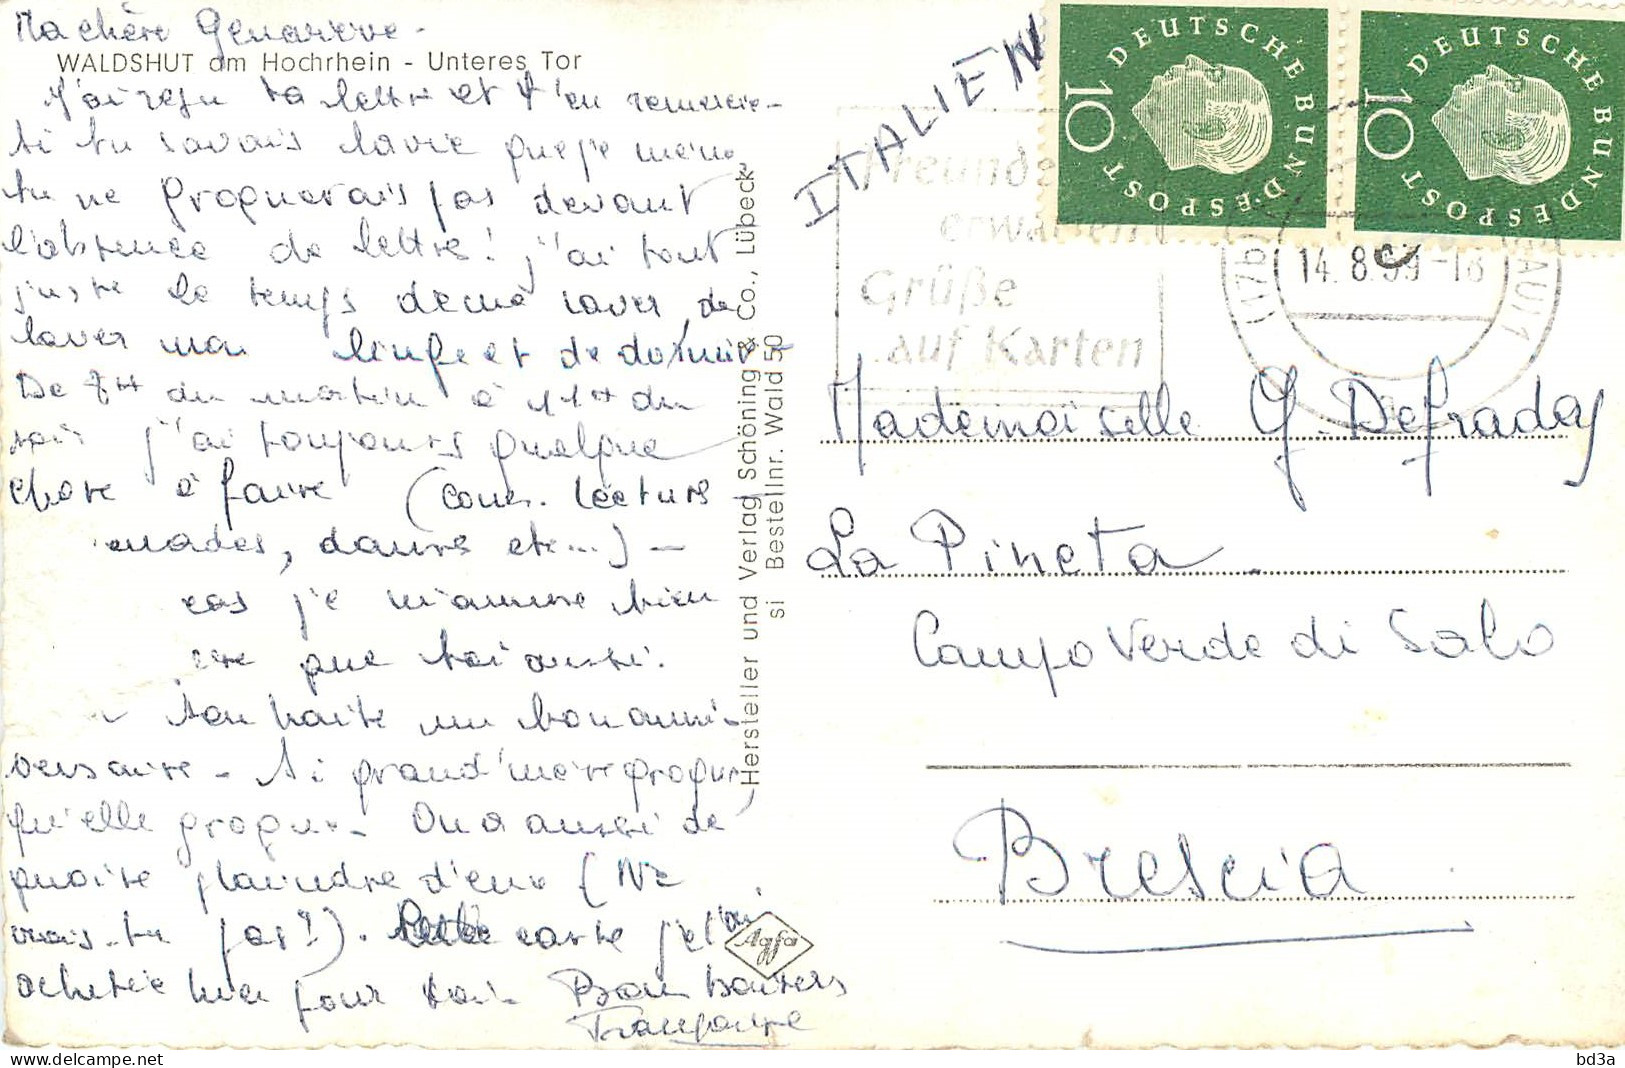 Ma chère Genevieve -
WALDSHUT am Hochrhein - Unteres Tor
J'ai reçu ta lettre et t'en remercie -
Si tu savais la vie que je mène
tu ne rroquerais pas devant
l'absence de lettre! j'ai tout
juste le temps de me laver de
laver mon linge et de dormir
De 7H du matin à 11H du
soir j'ai toujours quelque
chose à faire (cours. lecture
nades, danse etc...) -
cas je m'amuse bien
que toi aussi.
souhaite un bon anni-
versaire - Si grand'mère
qu'elle On a aussi de
quoi se plaindre d'eux (Ne
vas-tu pas!). carte je t'ai
achetée hier pour toi. Bons baisers
Françoise
Hersteller und Verlag Schöning & Co., Lübeck
si Bestellnr. Wald 50
Agfa
ITALIEN
DEUTSCHE BUNDESPOST 10
DEUTSCHE BUNDESPOST 10
Freunde
erwarten
Grüße
auf Karten
(17b)
14.8.59-18
Mademoiselle G. Defraday
La Pineta.
Campo Verde di Salo
Brescia
bd3a